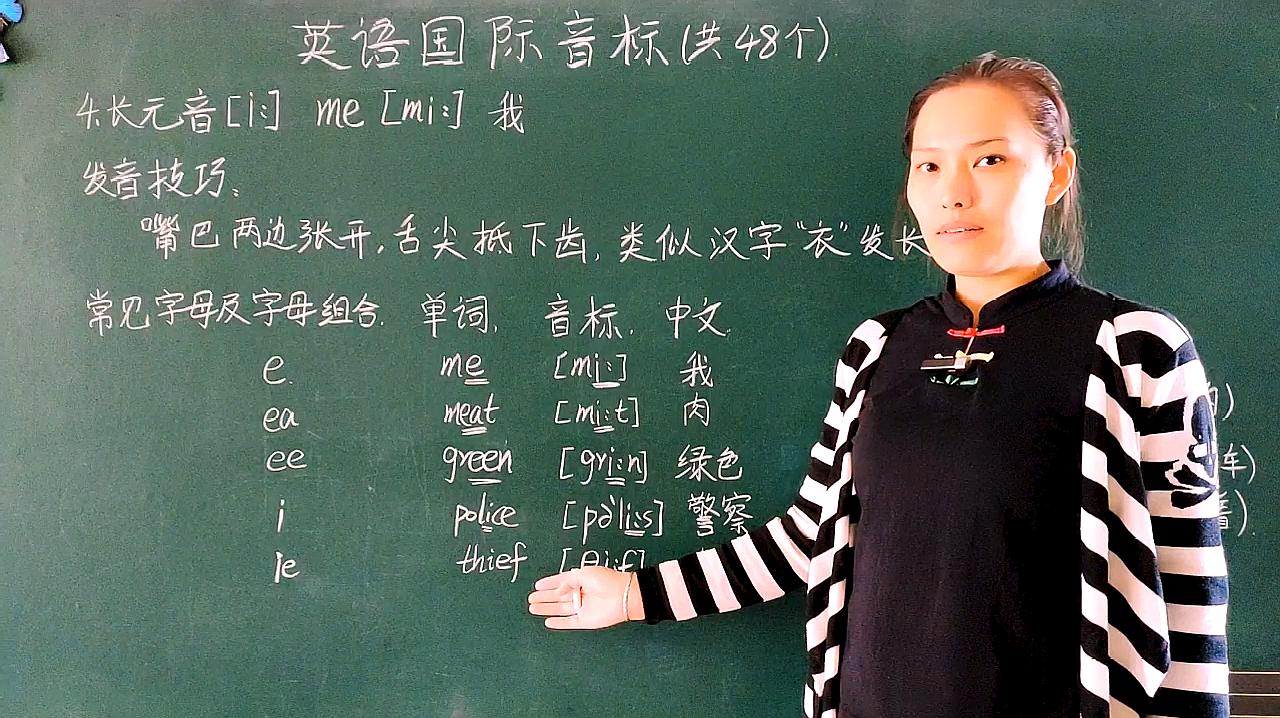 英语国际音标(共48个)
4.长元音[i:] me [mi:] 我
发音技巧:
嘴巴两边张开,舌尖抵下齿,类似汉字“衣”发长
常见字母及字母组合. 单词. 音标. 中文.
e. me [mi:] 我
ea meat [mi:t] 肉
ee green [gri:n] 绿色
i police [pə'li:s] 警察
ie thief [θi:f]
车)
音).